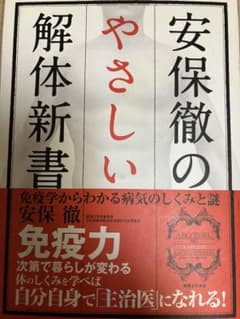 安保徹の
やさしい
解体新書
免疫学からわかる病気のしくみと謎
安保 徹
免疫力
次第で暮らしが変わる
体のしくみを学べば
自分自身で「主治医」になれる!